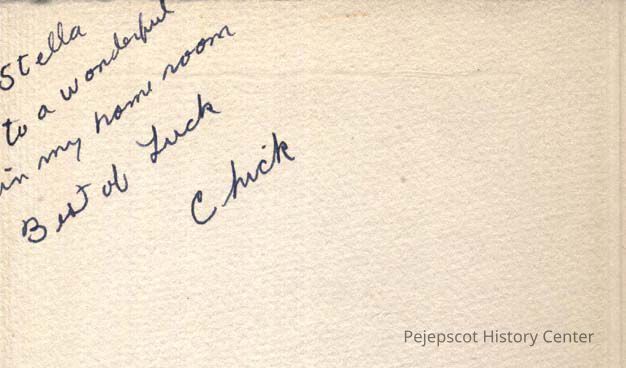 Stella
to a wonderful
in my home room
Best of Luck
Chick
Pejepscot History Center